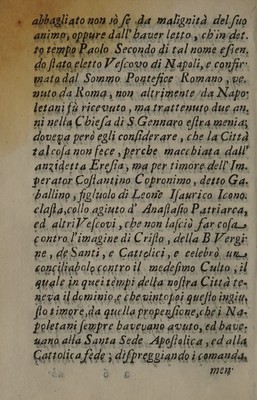 abbagliato non sò se da malignità del suo
animo, oppure dall'haver letto, ch'in det-
to tempo Paolo Secondo di tal nome essen-
do stato eletto Vescovo di Napoli, e confir-
mato dal Sommo Pontefice Romano, ve-
nuto da Roma, non altrimente da Napo-
letani fù ricevuto, ma trattenuto due an-
ni nella Chiesa di S. Gennaro estra menia;
doveva però egli considerare, che la Città
tal cosa non fece, perche macchiata dall'
anzidetta Eresia, ma per timore dell'Im-
perator Costantino Copronimo, detto Ga-
ballino, figluolo di Leone Isaurico Icono-
clasta, collo agiuto d'Anastasio Patriarca,
ed altri Vescovi, che non lasciò far cosa
contro l'imagine di Cristo, della B. Vergi-
ne, de Santi, e Cattolici, e celebrò un
conciliabolo contro il medesimo Culto, il
quale in quei tempi della nostra Città te-
neva il dominio, e che vinto poi questo ingiu-
sto timore, da quella propensione, che i Na-
poletani sempre havevano avuto, ed have-
vano alla Santa Sede Apostolica, ed alla
Cattolica fede; dispreggiando i comanda-
men-